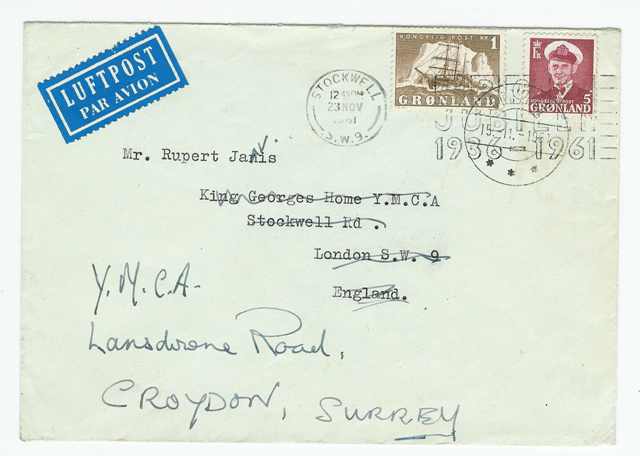 LUFTPOST
PAR AVION
STOCKWELL
23 NOV
S.W.9.
KONGELIG POST
1
GRØNLAND
5
GRØNLAND
JUBILEE
1936 - 1961
Mr. Rupert Janis
King Georges Home Y.M.C.A
Stockwell Rd .
London S.W. 9
England.
Y.M.C.A-
Lansdrone Road,
CROYDON, SURREY